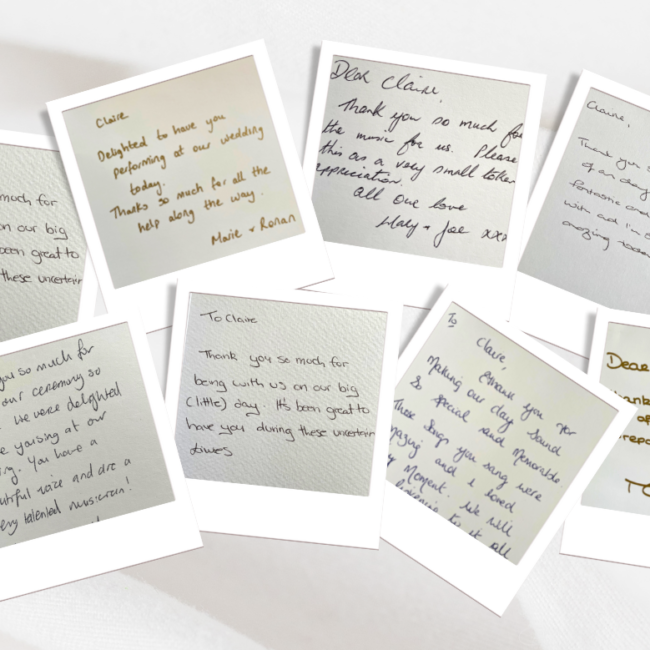 so much for
on our big
been great to
these uncertain
Claire
Delighted to have you
performing at our wedding
today.
Thanks so much for all the
help along the way.
Marie + Ronan
Dear Claire,
Thank you so much for
the music for us. Please
this as a very small token
appreciation.
All our love
Mary + Joe xxx
Claire,
Thank you
of an day
fantastic and
with aid in
amazing
you so much for
our ceremony so
. We were delighted
you sing at our
. You have a
voice and are a
very talented musician!
To Claire
Thank you so much for
being with us on our big
(little) day. It's been great to
have you during these uncertain
times
To
Claire,
Thank you for
Making our day Sound
So special and Memorable
Those Songs you sang were
amazing and I loved
Moment. We will
listening to it all
Dear